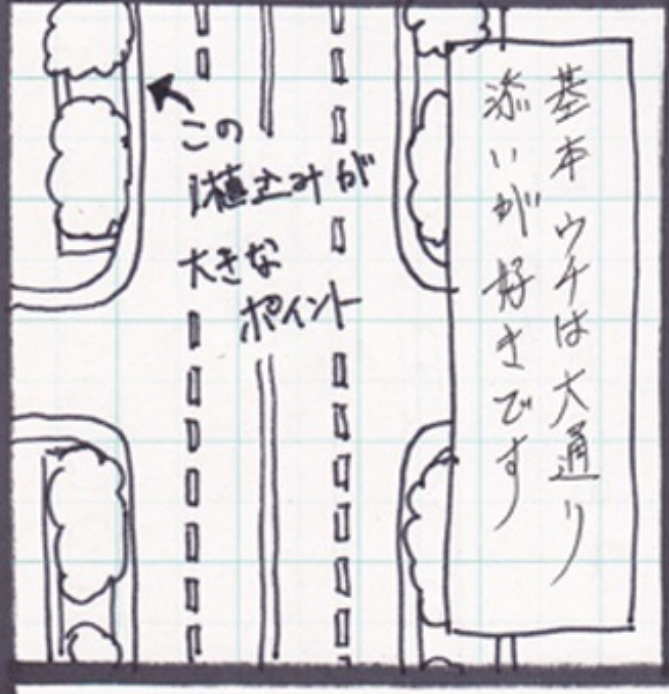 基本ウチは大通り
添いが好きです
この
植込みが
大きな
ポイント